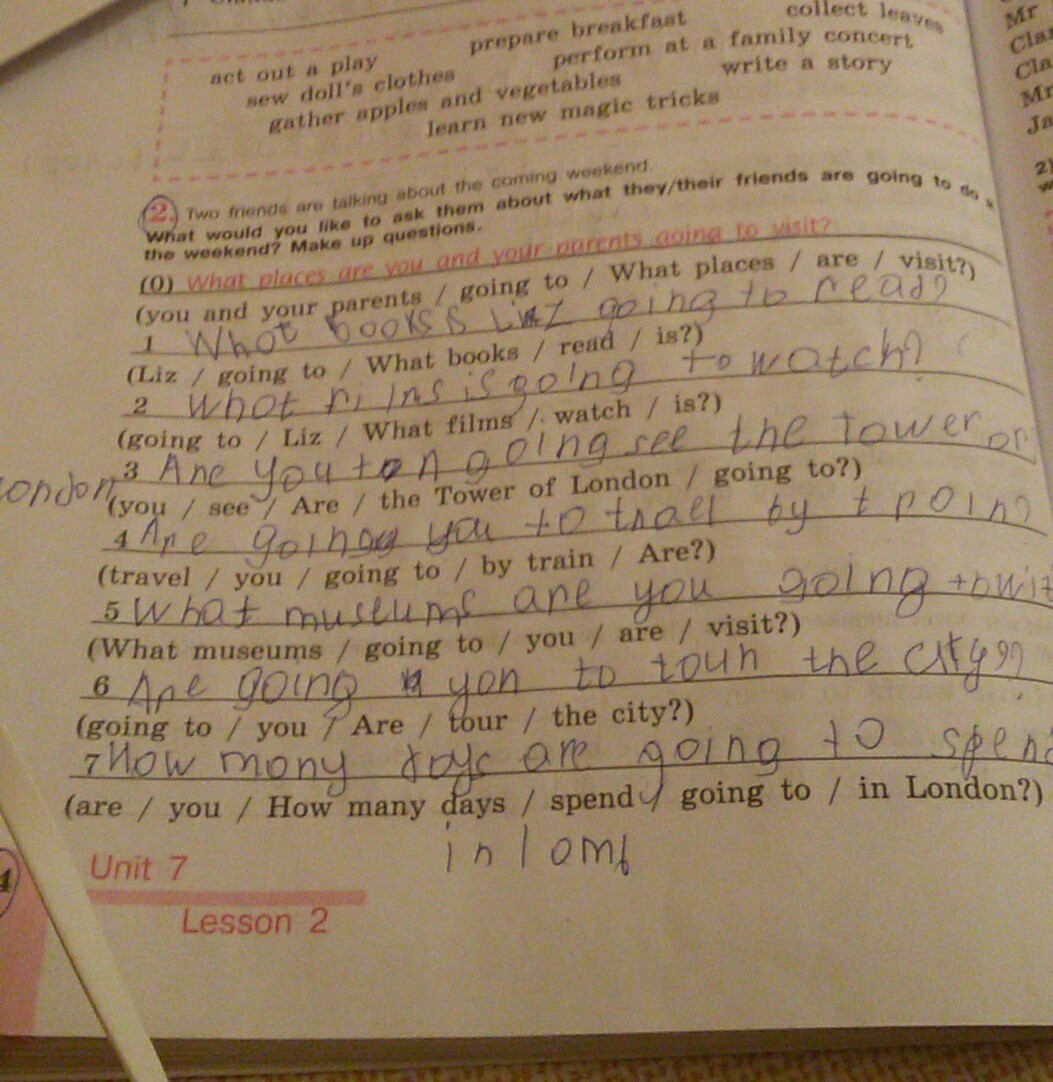 prepare breakfast collect leaves
act out a play perform at a family concert
sew doll's clothes write a story
gather apples and vegetables
learn new magic tricks
Mr
Cla
Cla
Mr
Ja
2)
2. Two friends are talking about the coming weekend.
What would you like to ask them about what they/their friends are going to do
the weekend? Make up questions.
(0) What places are you and your parents going to visit?
(you and your parents / going to / What places / are / visit?)
1 What books Liz going to read?
(Liz / going to / What books / read / is?)
2 What is going to watch?
(going to / Liz / What films / watch / is?)
3 Are you going see the Tower of
London
(you / see / Are / the Tower of London / going to?)
4 Are going you to by
(travel / you / going to / by train / Are?)
5 What museums are you going
(What museums / going to / you / are / visit?)
6 Are going you to the city?
(going to / you / Are / tour / the city?)
7 How many days are going to spend
(are / you / How many days / spend / going to / in London?)
in
Unit 7
Lesson 2